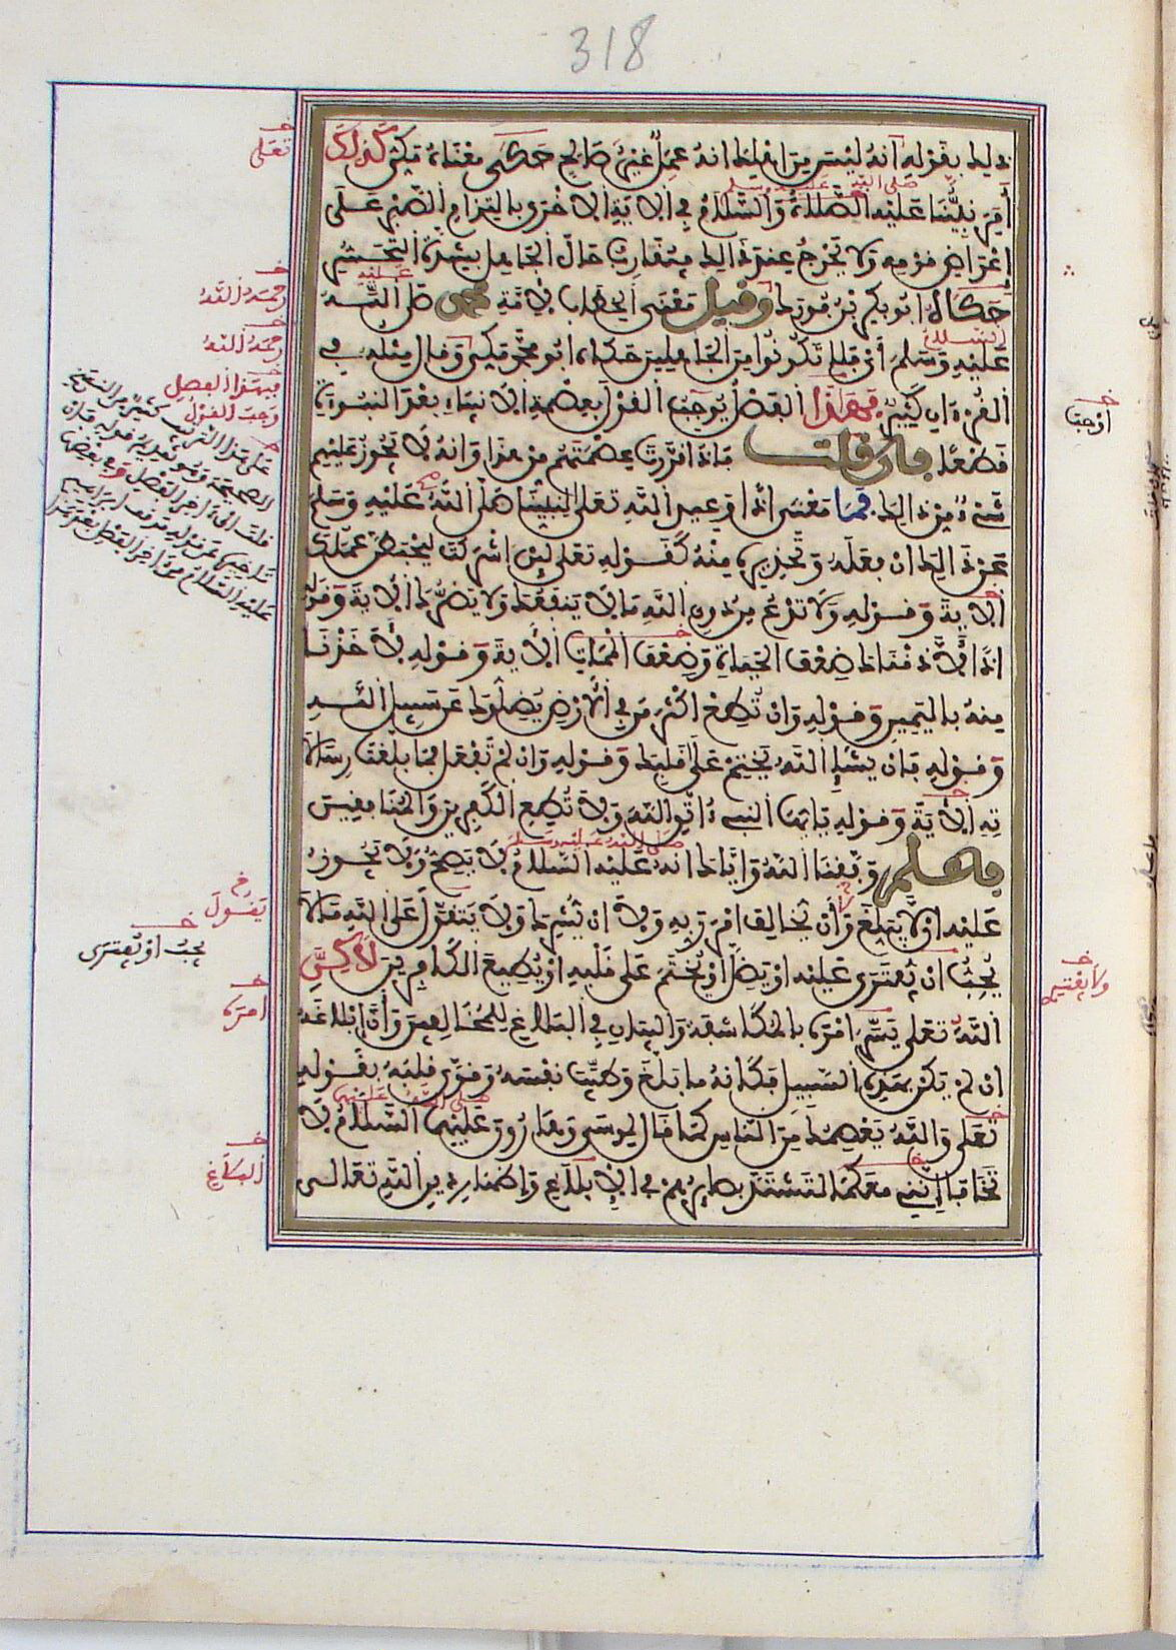 318
ذلك بقوله انه ليس من اهلك انه عمل غير صالح حكى معناه مكي كذلك
أمر نبينا عليه الصلاة والسلام في الاية الاخرى بالتزام الصبر على
صلى الله عليه وسلم
إعراض قومه ولا يحرج عند ذلك فيقارب حال الجاهل بشدة التحسر
حكاه ابو بكر بن فورك وقيل معنى الخطاب لامة محمد صلى الله
عليه
عليه وسلم أي فلا تكونوا من الجاهلين حكاه ابو محمد مكي وقال مثله في
السلام
القرءان كثير فبهذا الفضل يوجب القول بعصمة الانبياء بعد النبوءة
قطعا فان قلت فاذا قررت عصمتهم من هذا وانه لا يجوز عليهم
شىء من ذلك فما معنى اذا وعيد الله تعلى لنبينا صلى الله عليه وسلم
على ذلك ان فعله وتحذيره منه كقوله تعلى لئن اشركت ليحبطن عملك
الاية وقوله ولا تدع من دون الله ما لا ينفعك ولا يضرك الاية وقوله
اذا لأذقناك ضعف الحياة وضعف الممات الاية وقوله لأخذنا
منه باليمين وقوله وان تطع اكثر من في الارض يضلوك عن سبيل الله
وقوله فان يشإ الله يختم على قلبك وقوله وان لم تفعل فما بلغت رسالا
ته الاية وقوله يايها النبىء اتق الله ولا تطع الكفرين والمنافقين
فاعلم وفقنا الله واياك انه عليه السلام لا يصح ولا يجوز
صلى الله عليه وسلم
عليه ان لا يبلغ وأن يخالف امر ربه ولا ان يشرك ولا يتقول على الله ما لا
يجب ان يفترى عليه او يضل او يختم على قلبه او يطيع الكافرين لاكن
الله تعلى يسر امره بالمكاشفة والبيان في البلاغ للمخالفين وأن ابلاغه
ان لم يكن بهذه السبيل فكانه ما بلغ وطيب نفسه وقوى قلبه بقوله
تعلى والله يعصمك من الناس كما قال لموسى وهارون عليهما السلام لا
صلى الله عليهم
تخافا انني معكما لتشتد بصايرهم في الابلاغ وإظهار دين الله تعالى
تعلى
رحمه الله
رحمه الله
فبهذا الفصل
وجب القول
يقول
يجب او يفترى
امره
البلاغ
اوجب
ولا يفتري